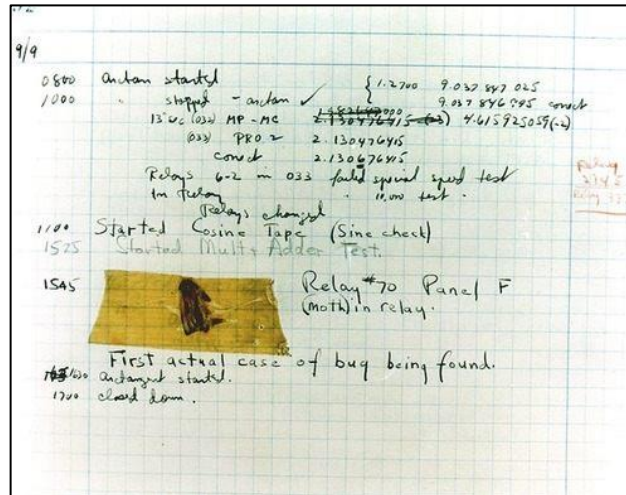 9/9
0800 arctan started { 1.2700 9.037 847 025
1000 " stopped - arctan ✓ 9.037 846 795 correct
13"uc (032) MP - MC 2.130476415 4.615925059(-2)
(033) PRO 2 2.130476415
correct 2.130676415
Relays 6-2 in 033 failed special speed test
Relay 10,000 test.
Relays changed
1100 Started Cosine Tape (Sine check)
1525 Started Mult + Adder Test.
1545 Relay #70 Panel F
(moth) in relay.
First actual case of bug being found.
1630 arctangent started.
1700 closed down.